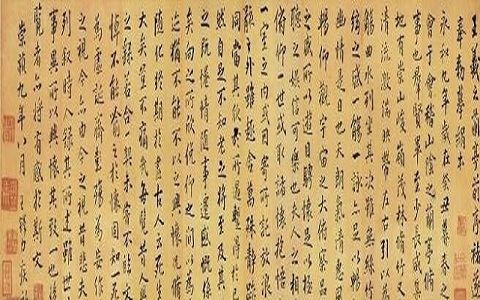 永和九年歲在癸丑暮春之初
會于會稽山陰之蘭亭脩
事也羣賢畢至少長咸集此
地有崇山峻嶺茂林脩竹又有
清流激湍映帶左右引以為流
觴曲水列坐其次雖無絲竹管
絃之盛一觴一詠亦足以暢敘
幽情是日也天朗氣清惠風和
暢仰觀宇宙之大俯察品類
之盛所以遊目騁懷足以極視
聽之娛信可樂也夫人之相與
俯仰一世或取諸懷抱悟言
一室之內或因寄所託放浪形
骸之外雖趣舍萬殊靜躁不
同當其欣於所遇暫得於己快
然自足不知老之將至及其所
之既惓情隨事遷感慨係之
矣向之所欣俛仰之間以為陳
迹猶不能不以之興懷況脩短
隨化終期於盡古人云死生亦
大矣豈不痛哉每覽昔人興感
之由若合一契未嘗不臨文嗟
悼不能喻之於懷固知一死生
為虛誕齊彭殤為妄作後
之視今亦由今之視昔悲夫故
列敘時人錄其所述雖世殊
事異所以興懷其致一也後之
覽者亦將有感於斯文
崇禎九年八月